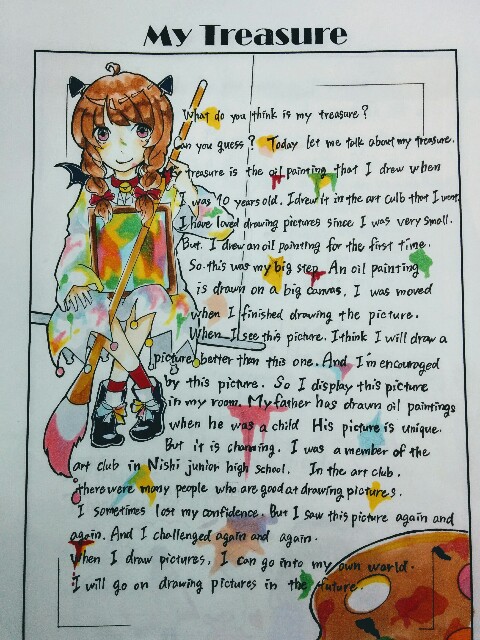 My Treasure
What do you think is my treasure?
Can you guess? Today let me talk about my treasure.
My treasure is the oil painting that I drew when
I was 10 years old. I drew it in the art culb that I went.
I have loved drawing pictures since I was very small.
But. I drew an oil painting for the first time.
So this was my big step. An oil painting
is drawn on a big canvas. I was moved
when I finished drawing the picture.
When I see this picture. I think I will draw a
picture better than this one. And I'm encouraged
by this picture. So I display this picture
in my room. My father has drawn oil paintings
when he was a child His picture is unique.
But it is charming. I was a member of the
art club in Nishi junior high school. In the art club.
there were many people who are good at drawing pictures.
I sometimes lost my confidence. But I saw this picture again and
again. And I challenged again and again.
When I draw pictures, I can go into my own world.
I will go on drawing pictures in the future.